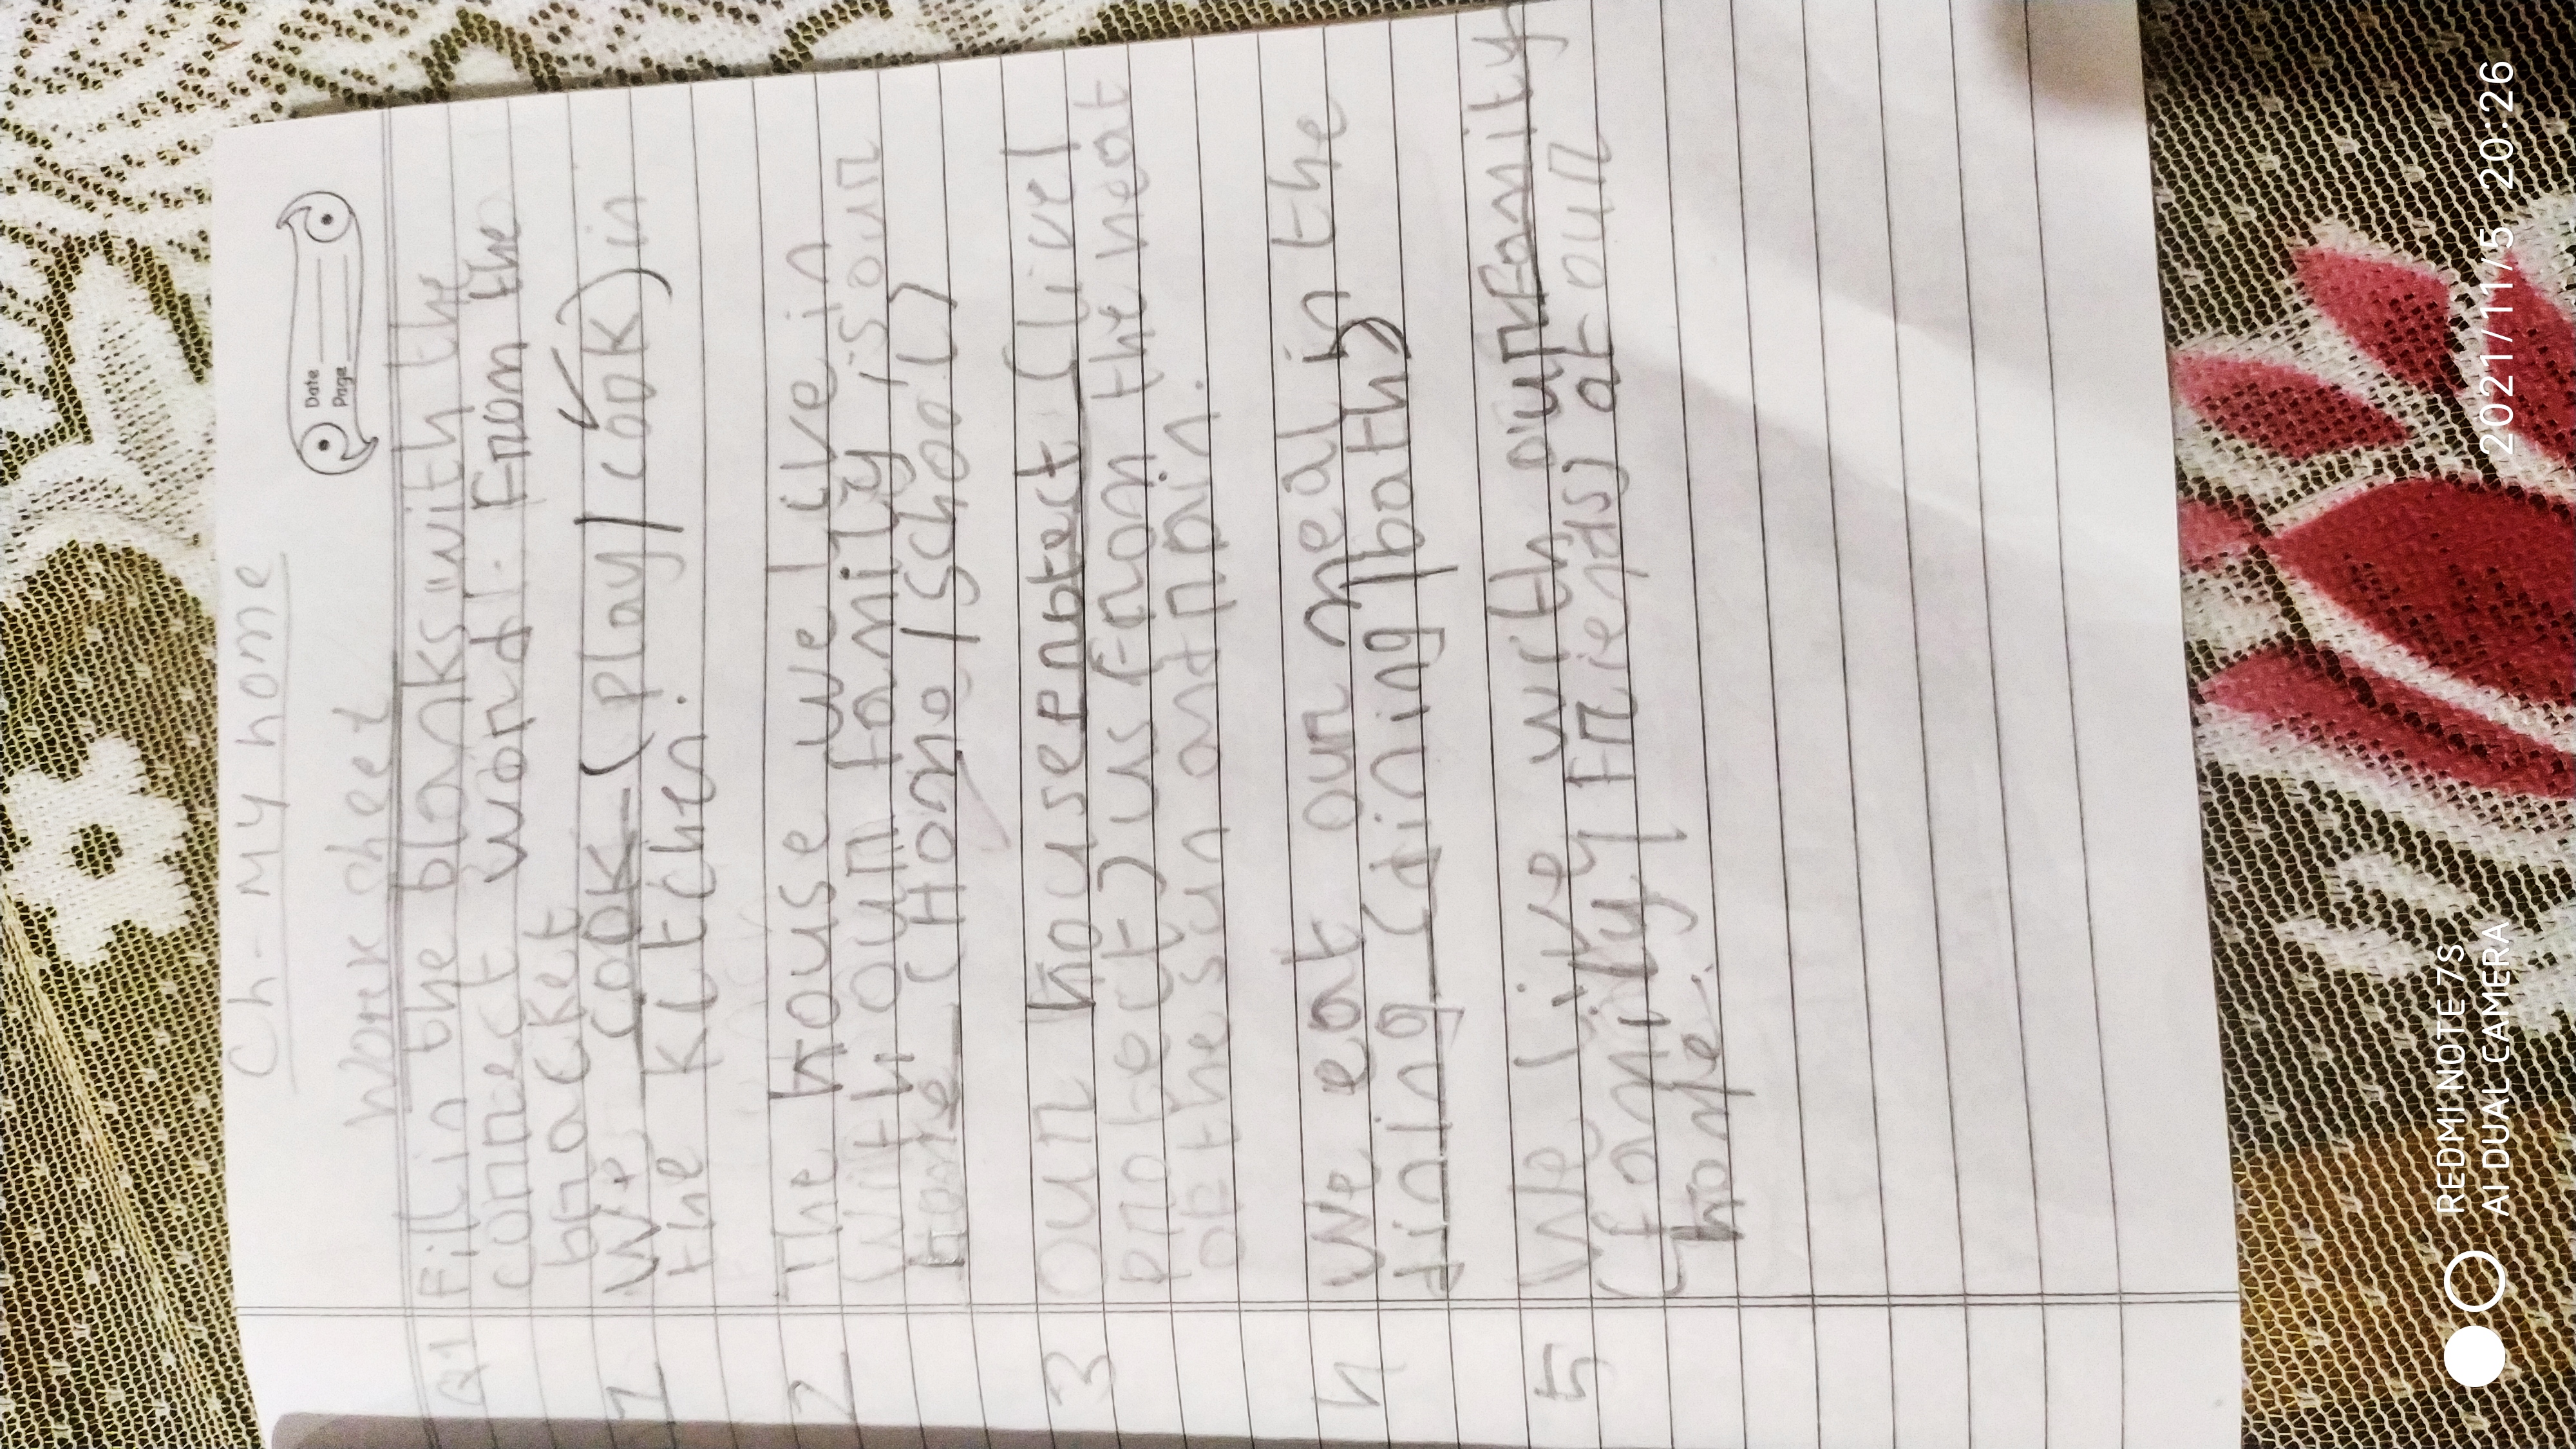 Ch - My home
Date
Page
Work sheet
Q1 Fill in the blanks with the
correct word. From the
bracket
1 We cook (play / cook) in
the kitchen.
2 The house we live in
with our family is our
home (Home / school)
3 Our house protect (live /
protect) us from the heat
of the sun and rain.
4 We eat our meal in the
dining (dining / bath)
5 We live with our family
(family / friends) at our
home.
REDMI NOTE 7S
AI DUAL CAMERA
2021/11/5 20:26